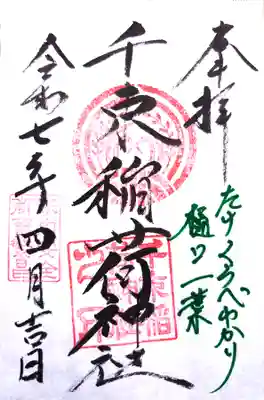 奉拝
たけくらべゆかり
樋口一葉
千束稲荷神社
令和七年四月吉日